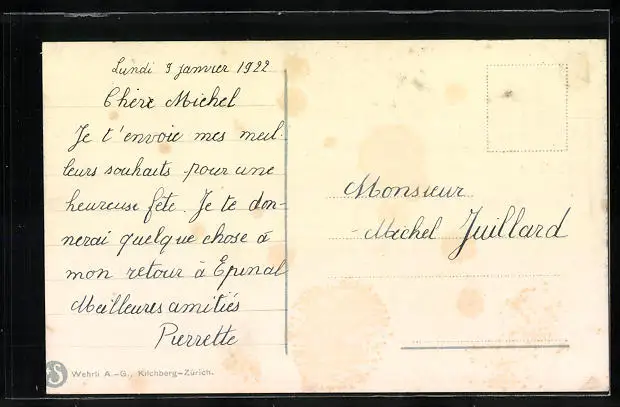 Lundi 9 janvier 1922
Chère Michel
Je t'envoie mes meil-
leurs souhaits pour une
heureuse fête. Je te don-
nerai quelque chose à
mon retour à Epinal
Meilleures amitiés
Pierrette
Monsieur
Michel Juillard
Wehrli A.-G., Kilchberg-Zürich.